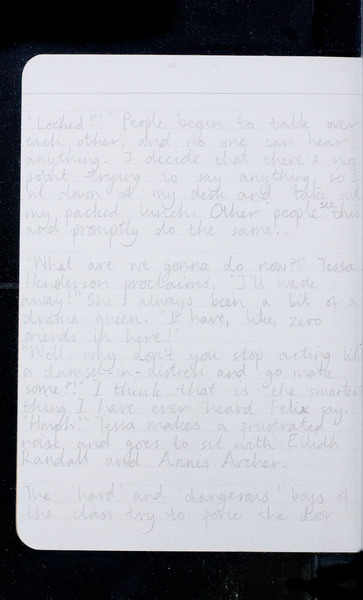 "Locked?!" People begin to talk over
each other, and no one can hear
anything. I decide that there's no
point trying to say anything, so I
sit down at my desk and take out
my packed lunch. Other people see this
and promptly do the same.
"What are we gonna do now?!" Tessa
Henderson proclaims. "I'll waste
away!" She's always been a bit of a
drama queen. "I have, like, zero
friends in here!"
"Well, why don't you stop acting li
a damsel-in-distress and go make
some?!" I think that is the smartest
thing I have ever heard Felix say.
"Hmph!" Tessa makes a frustrated
noise, and goes to sit with Eilidh
Randall and Annis Archer.
The 'hard' and 'dangerous' boys of
the class try to force the door